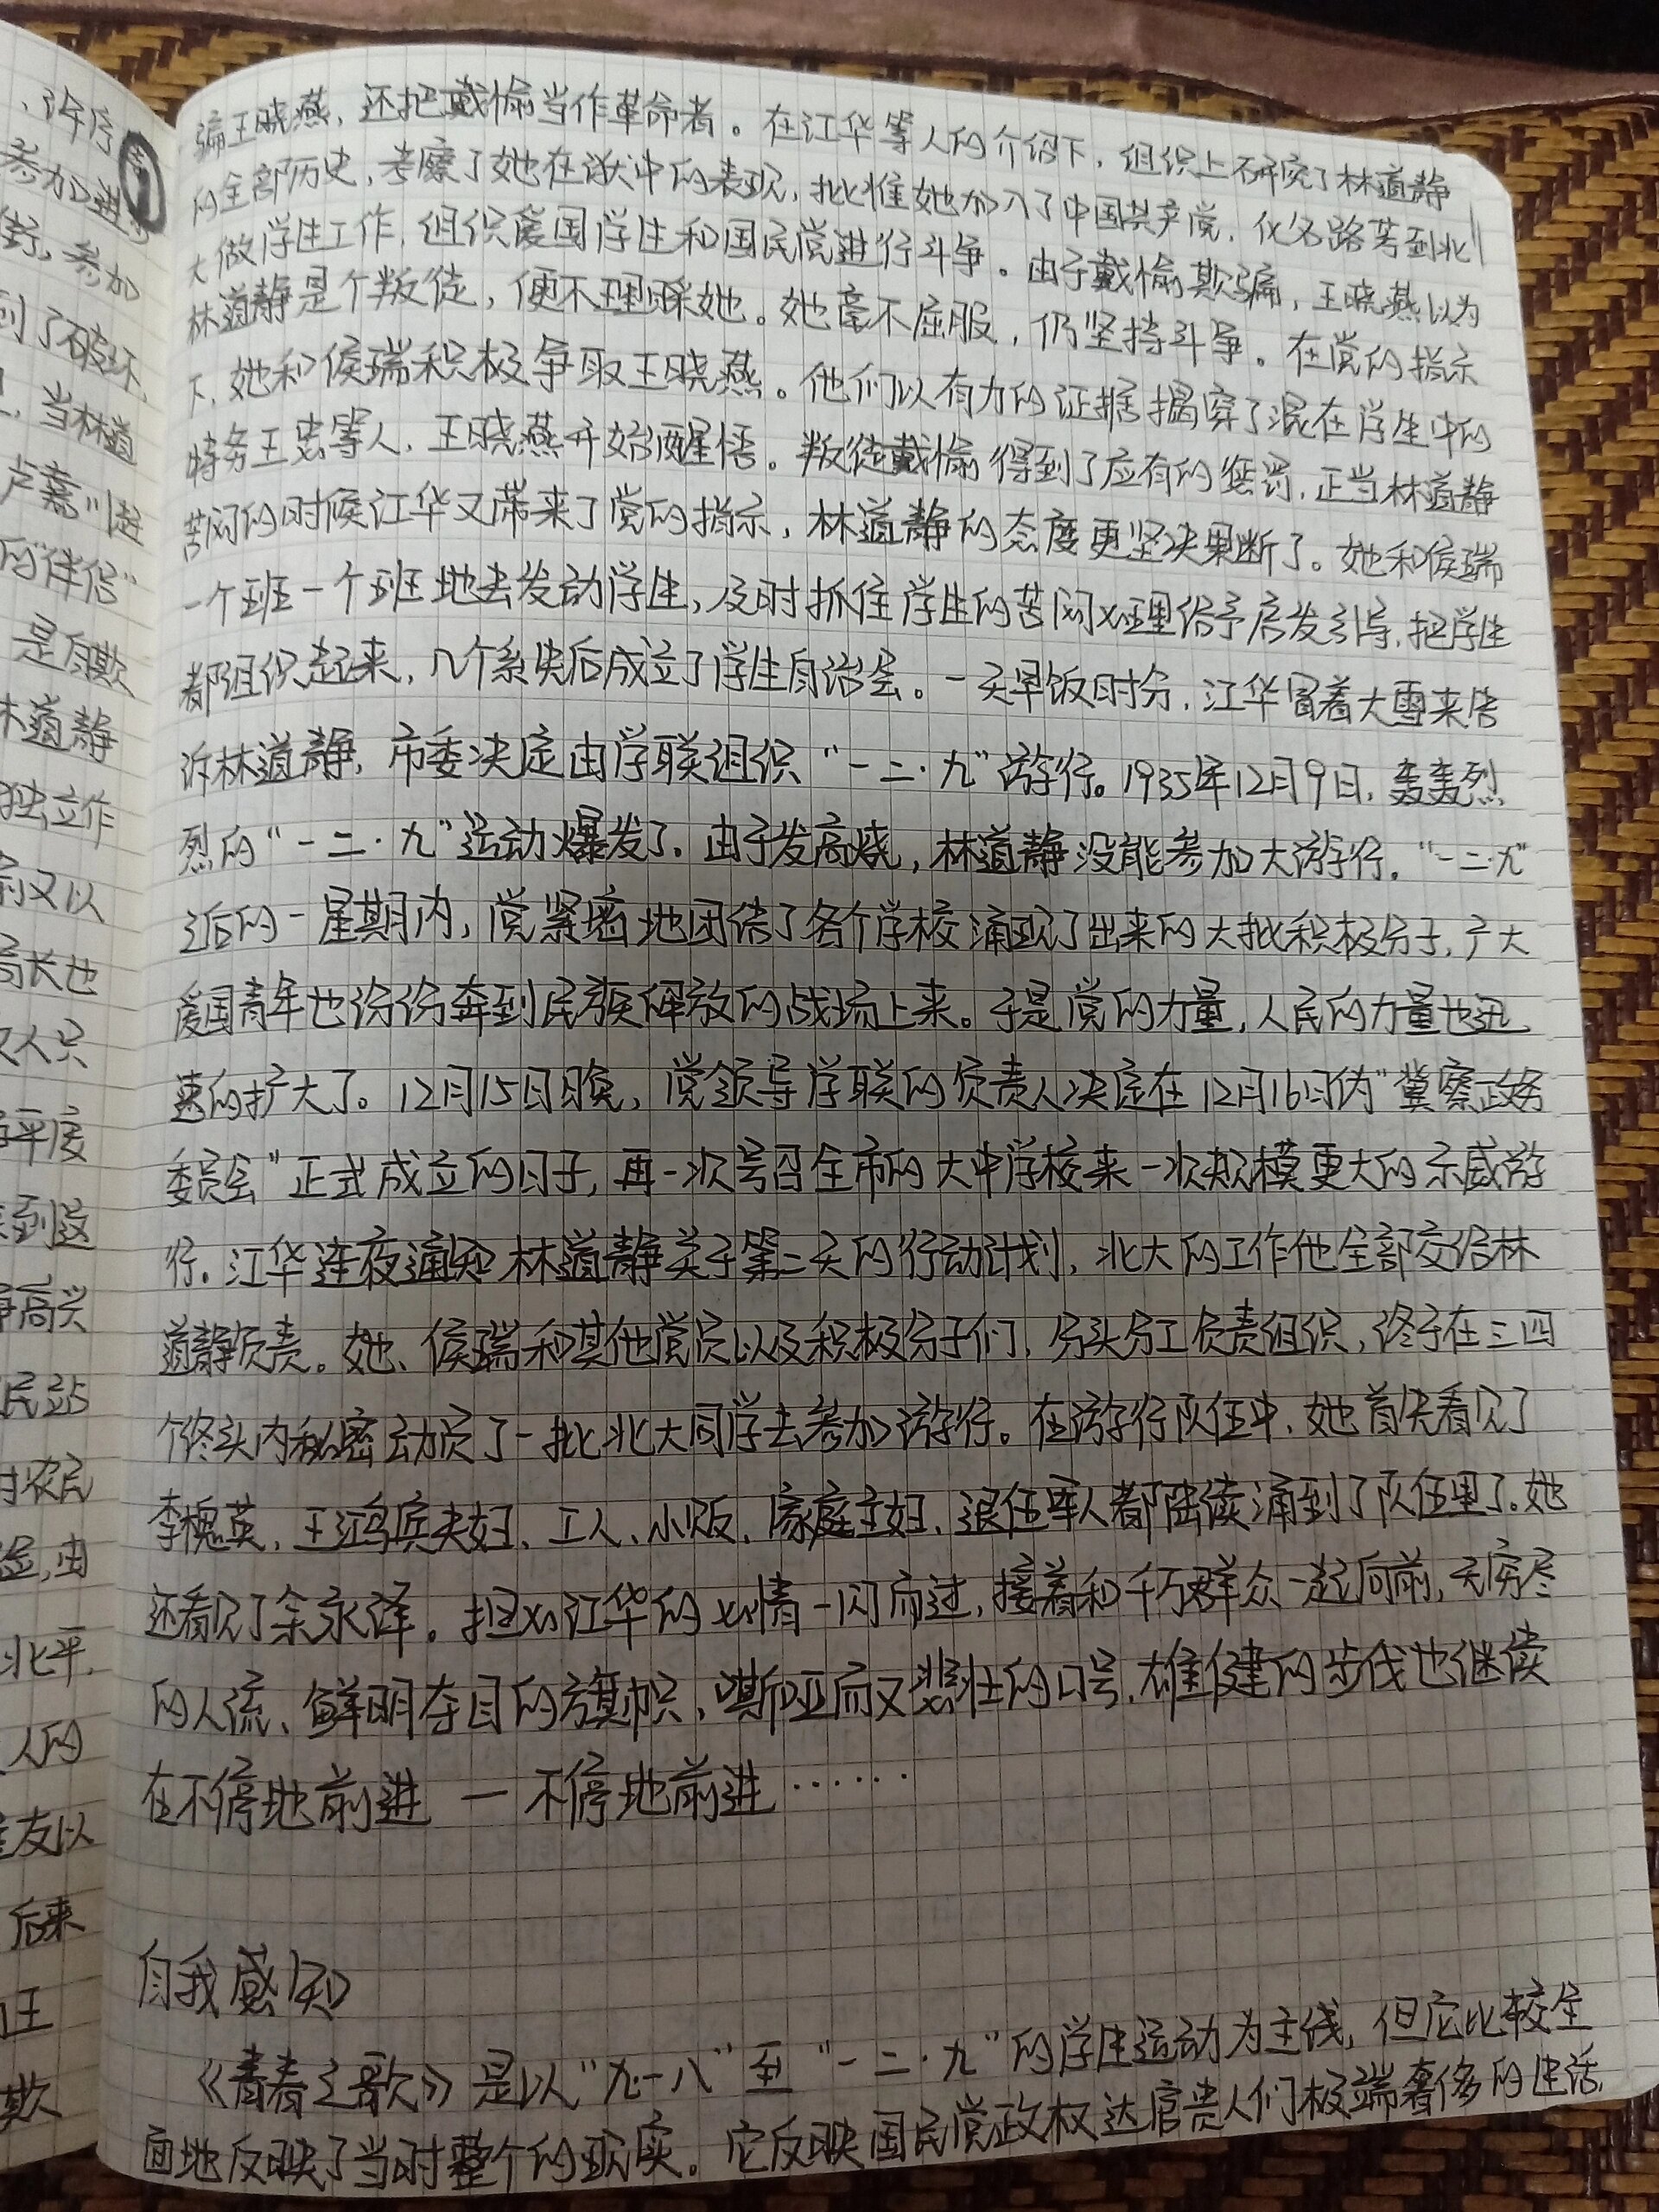 骗王晓燕，还把戴愉当作革命者。在江华等人的介绍下，组织上研究了林道静
的全部历史，考察了她在狱中的表现，批准她加入了中国共产党，化名路芳到北
大做学生工作，组织爱国学生和国民党进行斗争。由于戴愉欺骗，王晓燕以为
林道静是个叛徒，便不理睬她。她毫不屈服，仍坚持斗争。在党的指示
下，她和侯瑞积极争取王晓燕。他们以有力的证据揭穿了混在学生中的
特务王忠等人，王晓燕开始醒悟。叛徒戴愉得到了应有的惩罚，正当林道静
苦闷的时候江华又带来了党的指示，林道静的态度更坚决果断了。她和侯瑞
一个班一个班地去发动学生，及时抓住学生的苦闷心理给予启发引导，把学生
都组织起来，几个系先后成立了学生自治会。一天早饭时分，江华冒着大雪来告
诉林道静，市委决定由学联组织“一二·九”游行。1935年12月9日，轰轰烈
烈的“一二·九”运动爆发了。由于发高烧，林道静没能参加大游行。“一二·九”
过后的一星期内，党紧密地团结了各个学校涌现了出来的大批积极分子，广大
爱国青年也纷纷奔到民族解放的战场上来。于是党的力量，人民的力量也迅
速的扩大了。12月15日晚，党领导学联的负责人决定在12月16日伪“冀察政务
委员会”正式成立的日子，再一次号召全市的大中学校来一次规模更大的示威游
行。江华连夜通知林道静关于第二天的行动计划，北大的工作他全部交给林
道静负责。她、侯瑞和其他党员以及积极分子们，分头分工负责组织，终于在三四
个终头内秘密动员了一批北大同学去参加游行。在游行队伍中，她首先看见了
李槐英，王鸿宾夫妇、工人、小贩、家庭主妇、退伍军人都陆续涌到了队伍里了。她
还看见了余永泽。担心江华的心情一闪而过，接着和千万群众一起向前，无穷尽
的人流、鲜明夺目的旗帜、嘶哑而又悲壮的口号，雄健的步伐也继续
在不停地前进 — 不停地前进……
自我感知
《青春之歌》是以“九一八”至“一二·九”的学生运动为主线，但它比较全
面地反映了当时整个的现实。它反映国民党政权达官贵人们极端奢侈的生活，